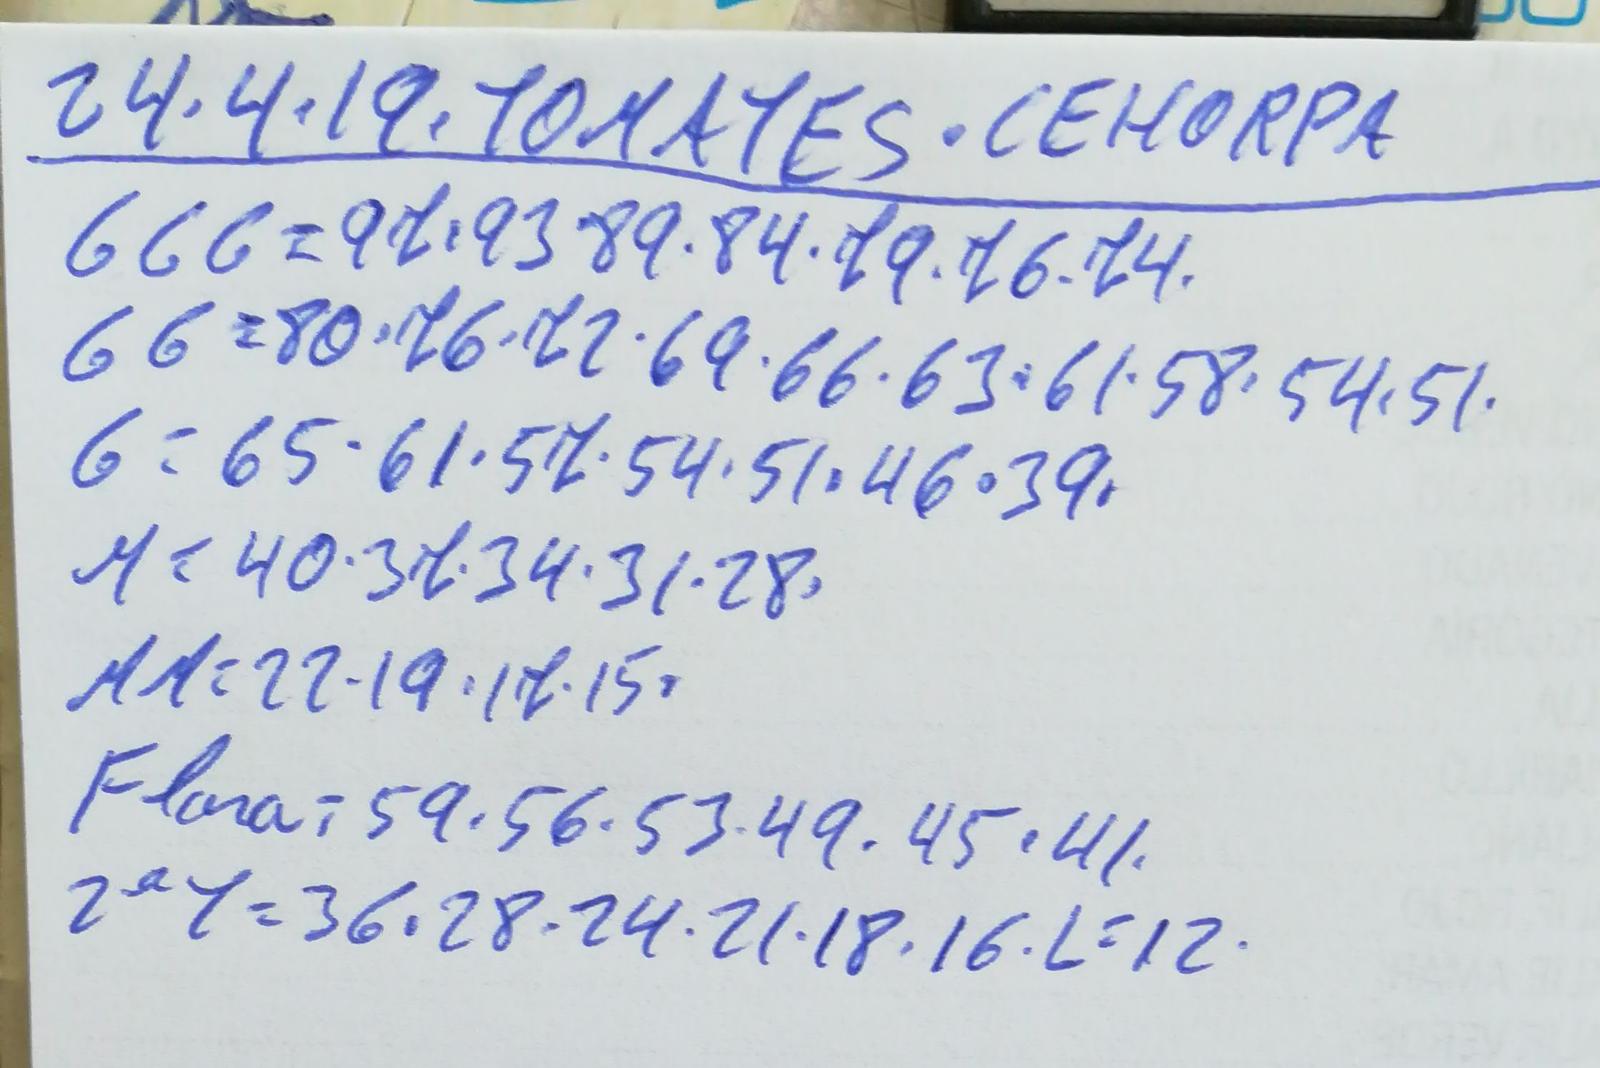 24.4.19.TOMATES.CEHORPA
GGG=97.93.89.84.79.76.74.
GG=80.76.72.69.66.63.61.58.54.51.
G=65.61.57.54.51.46.39.
M=40.37.34.31.28.
MM=22.19.17.15.
Flora=59.56.53.49.45.41.
2ªT=36.28.24.21.18.16.L=12.